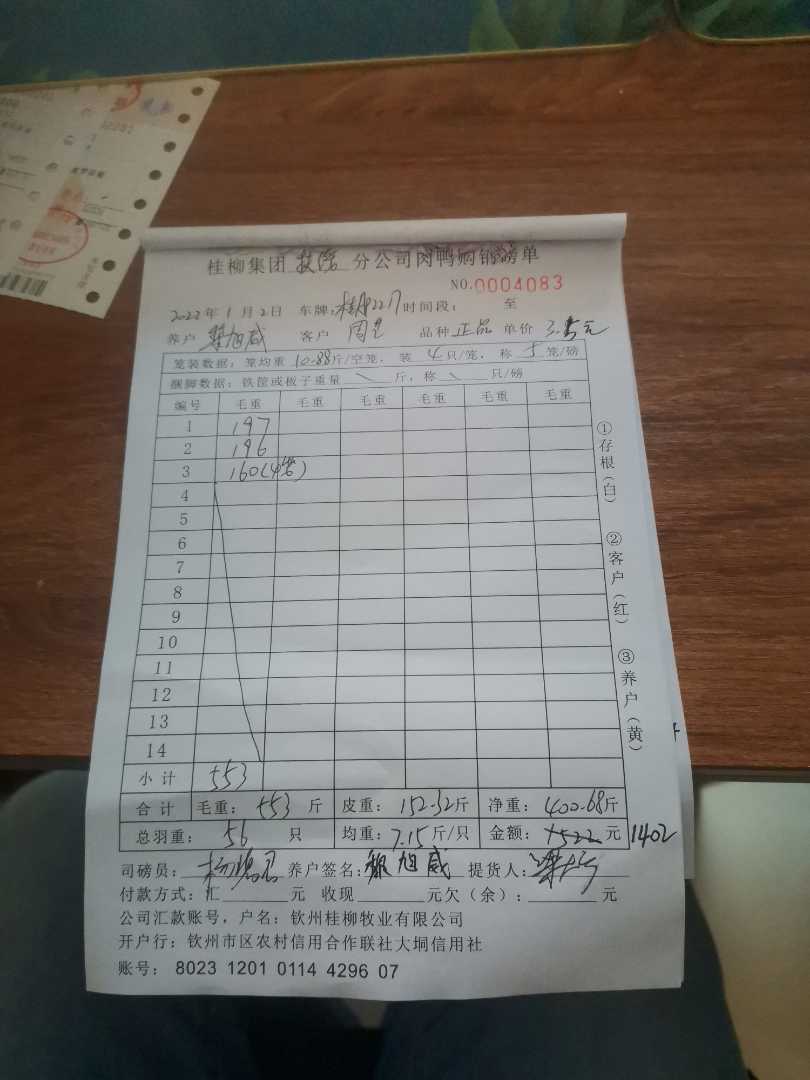 桂柳集团 扶绥 分公司肉鸭购销磅单
NO.0004083
2022年1月2日 车牌: 时间段: 至
养户 旭威 客户 周 品种 正品 单价 3.5元
笼装数据: 笼均重 10.88斤/空笼, 装 4 只/笼, 称 5 笼/磅
捆脚数据: 铁筐或板子重量 \ 斤, 称 \ 只/磅
编号 毛重 毛重 毛重 毛重 毛重 毛重
1 197
2 196
3 160(4笼)
4
5
6
7
8
9
10
11
12
13
14
小计 553
合计 毛重: 553 斤 皮重: 152.32斤 净重: 400.68斤
总羽重: 56 只 均重: 7.15斤/只 金额: 元 1402
司磅员: 养户签名: 旭威 提货人:
付款方式: 汇 元 收现 元欠(余): 元
公司汇款账号, 户名: 钦州桂柳牧业有限公司
开户行: 钦州市区农村信用合作联社大垌信用社
账号: 8023 1201 0114 4296 07
①存根(白)
②客户(红)
③养户(黄)